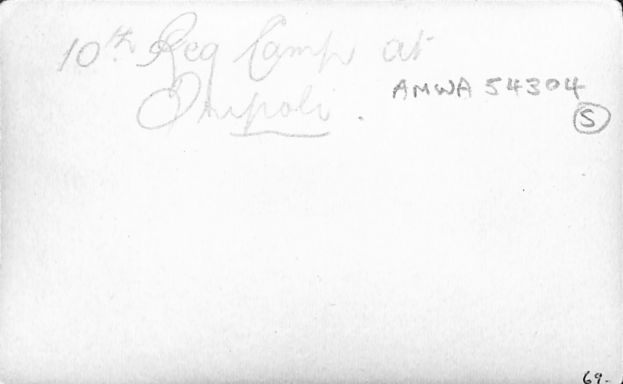 10th Reg Camp at
AMWA 54304
S
69-